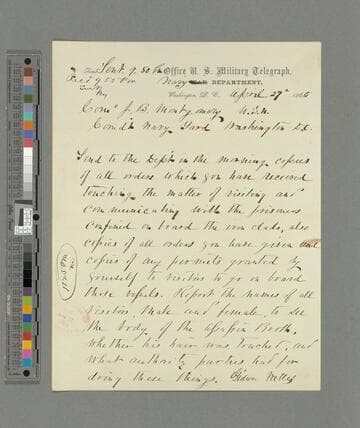 Sent. 9.50 Pm Office U. S. Military Telegraph,
Rec'd 9.55 Pm Navy WAR DEPARTMENT,
Washington, D. C., April 27" 1865
Como J. B. Montgomery U.S.N.
Comdt Navy Yard Washington D.C.
Send to the Dept in the morning copies
of all orders which you have received
touching the matter of visiting and
communicating with the prisoners
confined on board the iron clads, also
copies of all orders you have given and
copies of any permits granted by
yourself to visitors to go on board
those vessels. Report the names of all
visitors, male and female, to see
the body of the assassin Booth,
whether his hair was touched, and
what authority parties had for
doing these things. Gideon Welles